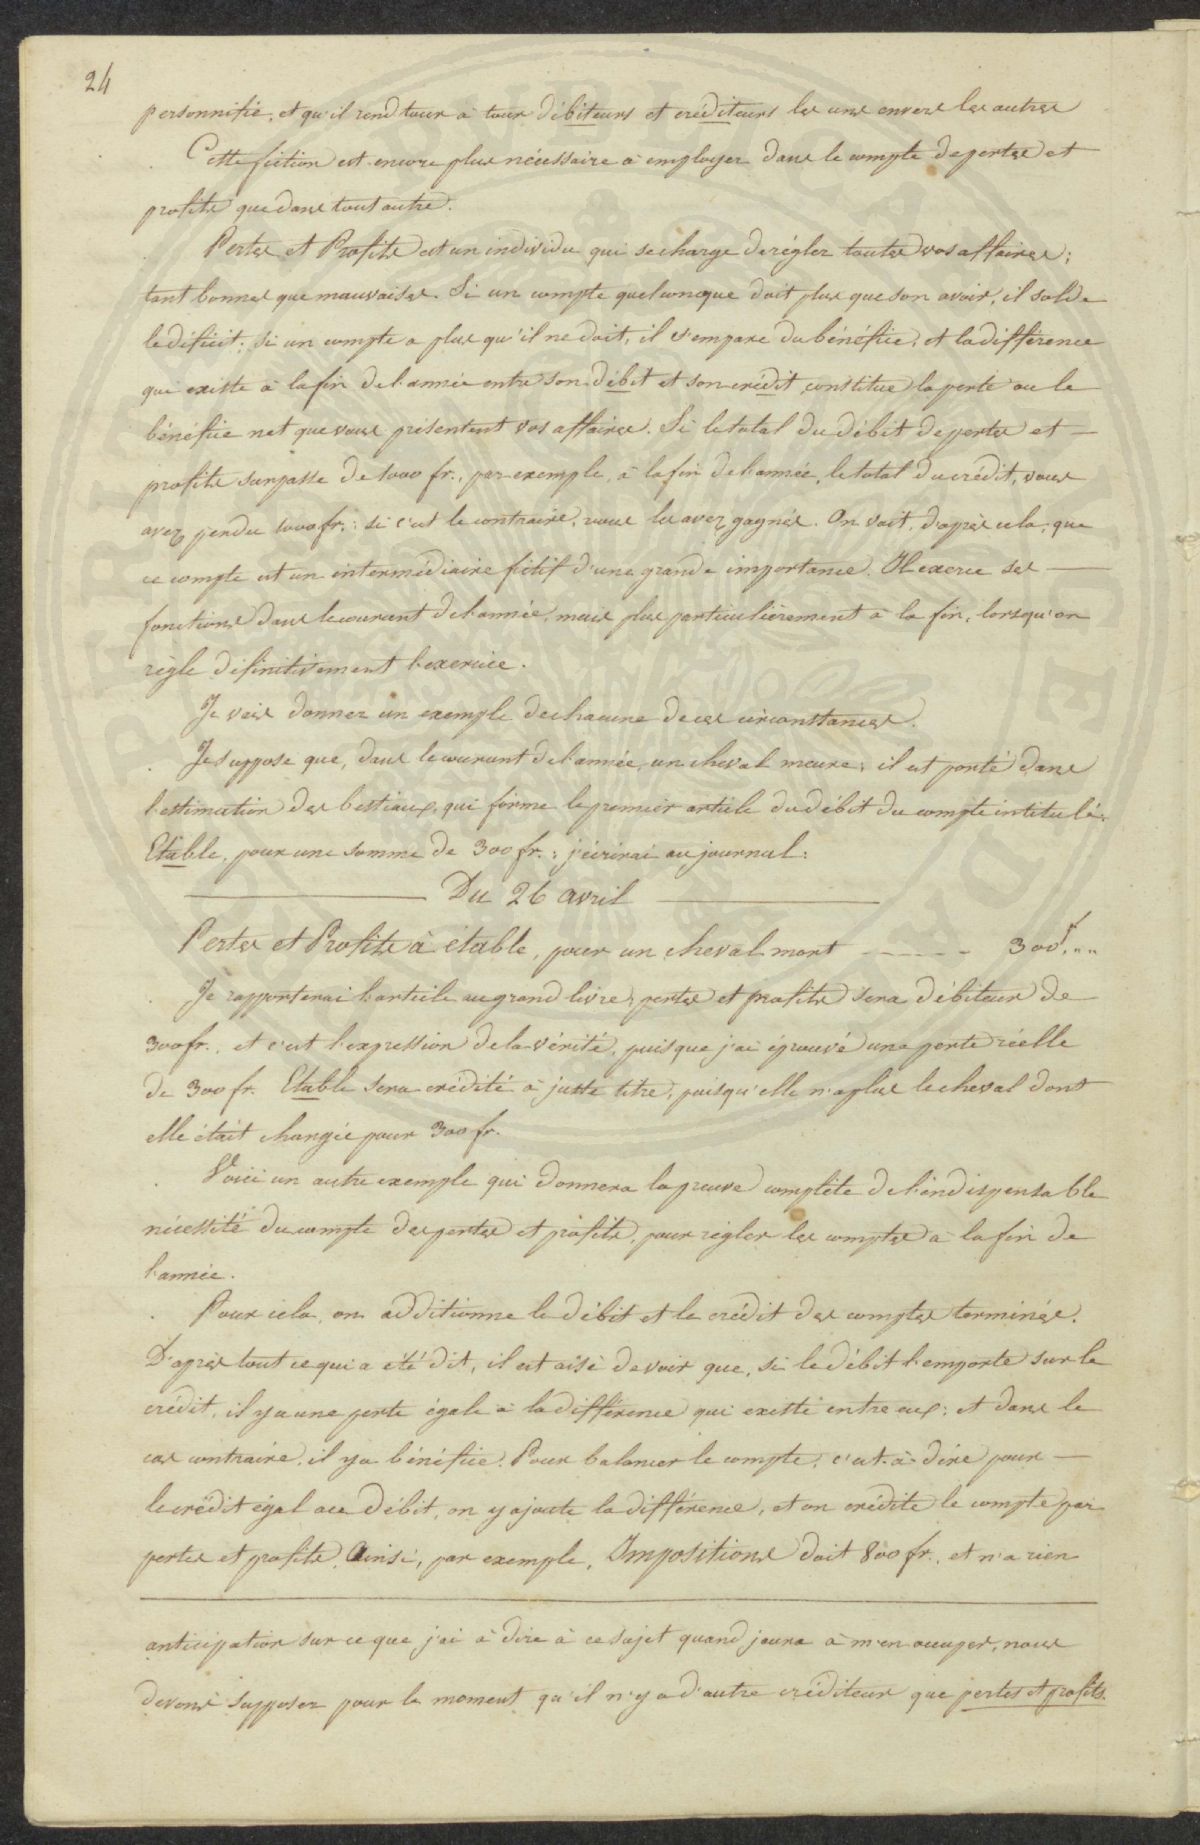 24
personnifié, et qu'il rend tour à tour débiteurs et créditeurs les uns envers les autres
Cette fiction est encore plus nécessaire à employer dans le compte de pertes et
profits que dans tout autre.
Pertes et Profits est un individu qui se charge de régler toutes vos affaires;
tant bonnes que mauvaises. Si un compte quelconque doit plus que son avoir, il solde
le déficit; si un compte a plus qu'il ne doit, il s'empare du bénéfice, et la différence
qui existe à la fin de l'année entre son débit et son crédit, constitue la perte ou le
bénéfice net que vous présentent vos affaires. Si le total du débit de pertes et —
profits surpasse de 1000 fr., par exemple, à la fin de l'année, le total du crédit, vous
avez perdu 1000 fr.; si c'est le contraire, vous les avez gagnés. On voit, d'après cela, que
ce compte est un intermédiaire fictif d'une grande importance. Il exerce ses —
fonctions dans le courant de l'année, mais plus particulièrement à la fin, lorsqu'on
règle définitivement l'exercice.
Je vais donner un exemple de chacune de ces circonstances.
Je suppose que, dans le courant de l'année, un cheval meure; il est porté dans
l'estimation des bestiaux, qui forme le premier article du débit du compte intitulé:
Etable, pour une somme de 300 fr.; j'écrirai au journal:
Du 26 avril
Pertes et Profits à étable, pour un cheval mort ----- 300f. ,,
Je rapporterai l'article au grand livre; pertes et profits sera débiteur de
300 fr., et c'est l'expression de la vérité, puisque j'ai éprouvé une perte réelle
de 300 fr. Etable sera crédité à juste titre, puisqu'elle n'a plus le cheval dont
elle était chargée pour 300 fr.
Voici un autre exemple qui donnera la preuve complète de l'indispensable
nécessité du compte des pertes et profits, pour régler les comptes à la fin de
l'année.
Pour cela, on additionne le débit et le crédit des comptes terminés.
D'après tout ce qui a été dit, il est aisé de voir que, si le débit l'emporte sur le
crédit, il y a une perte égale à la différence qui existe entre eux; et dans le
cas contraire, il y a bénéfice. Pour balancer le compte, c'est-à-dire pour —
le crédit égal au débit, on y ajoute la différence, et on crédite le compte par
pertes et profits. Ainsi, par exemple, Impositions doit 800 fr., et n'a rien
anticipation sur ce que j'ai à dire à ce sujet quand j'aura à m'en occuper, nous
devons supposer pour le moment qu'il n'y a d'autre créditeur que pertes et profits.